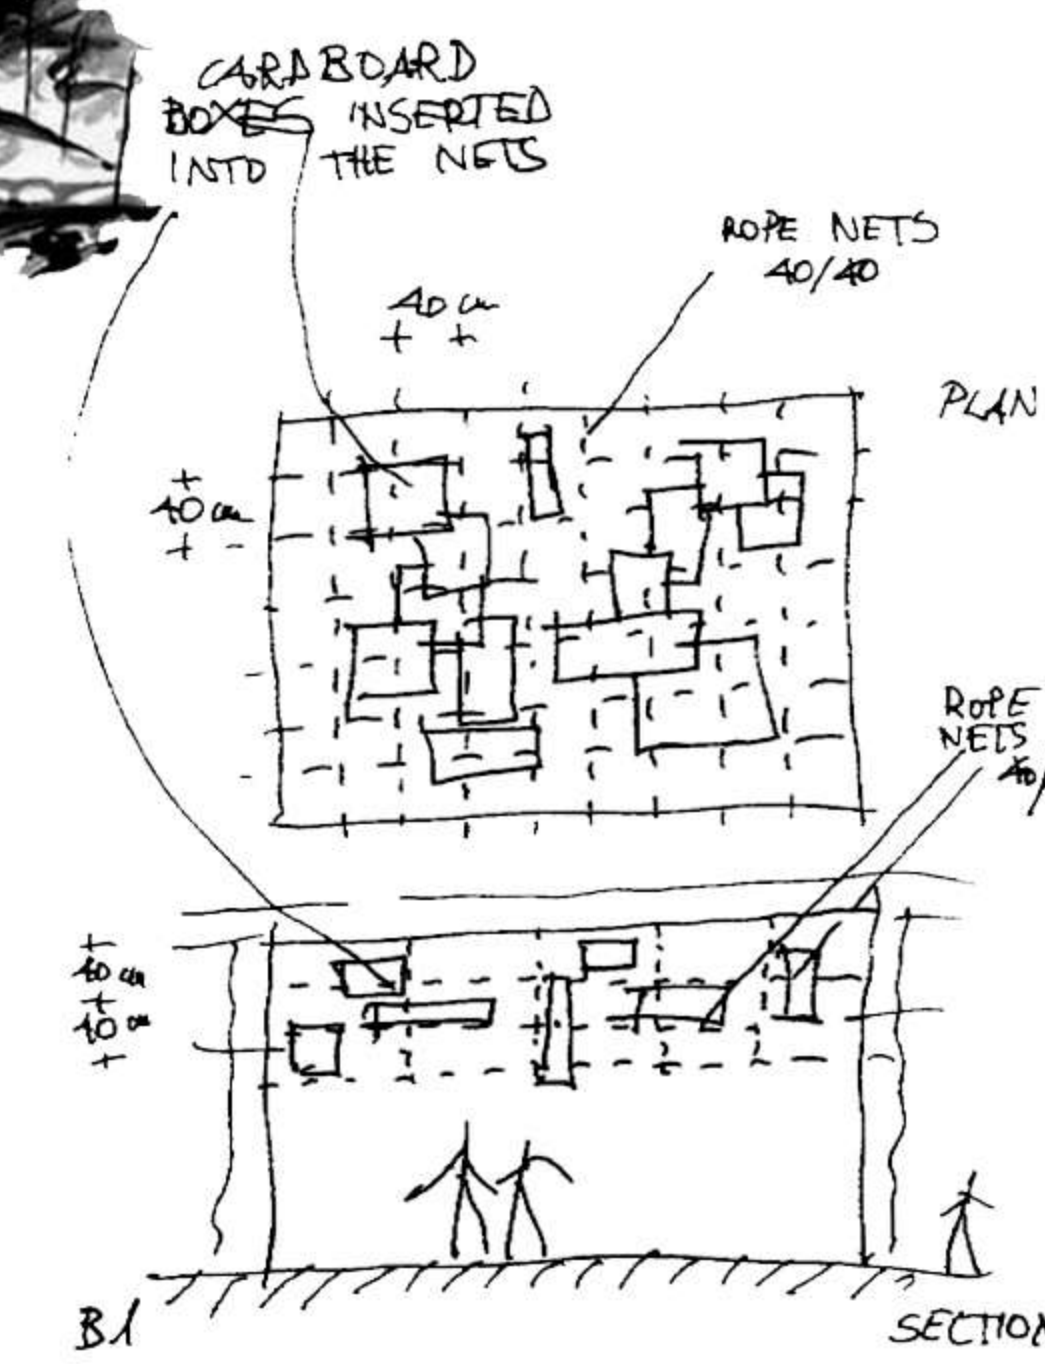 CARDBOARD
BOXES INSERTED
INTO THE NETS
ROPE NETS
40/40
40 cm
PLAN
40 cm
ROPE
NETS
40/
40 cm
40 cm
B1
SECTION